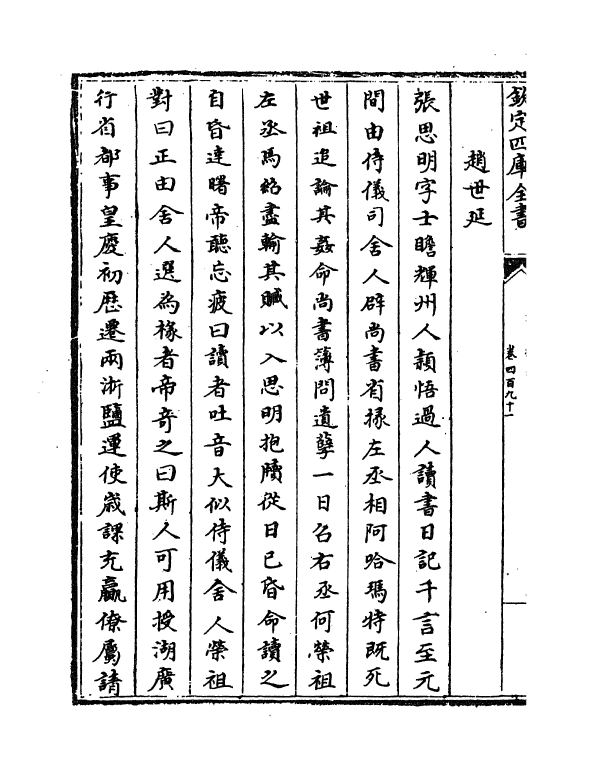 欽定四庫全書
卷四百九十一
趙世延
張思明字士瞻輝州人頴悟過人讀書日記千言至元
間由侍儀司舍人辟尚書省掾左丞相阿哈瑪特既死
世祖追論其姦命尚書簿問遺孽一日召右丞何榮祖
左丞馬紹盡輸其贓以入思明抱牘從日已昏命讀之
自昏達曙帝聽忘疲曰讀者吐音大似侍儀舍人榮祖
對曰正由舍人選為掾者帝奇之曰斯人可用授湖廣
行省都事皇慶初歴遷兩浙鹽運使歲課充贏僚屬請